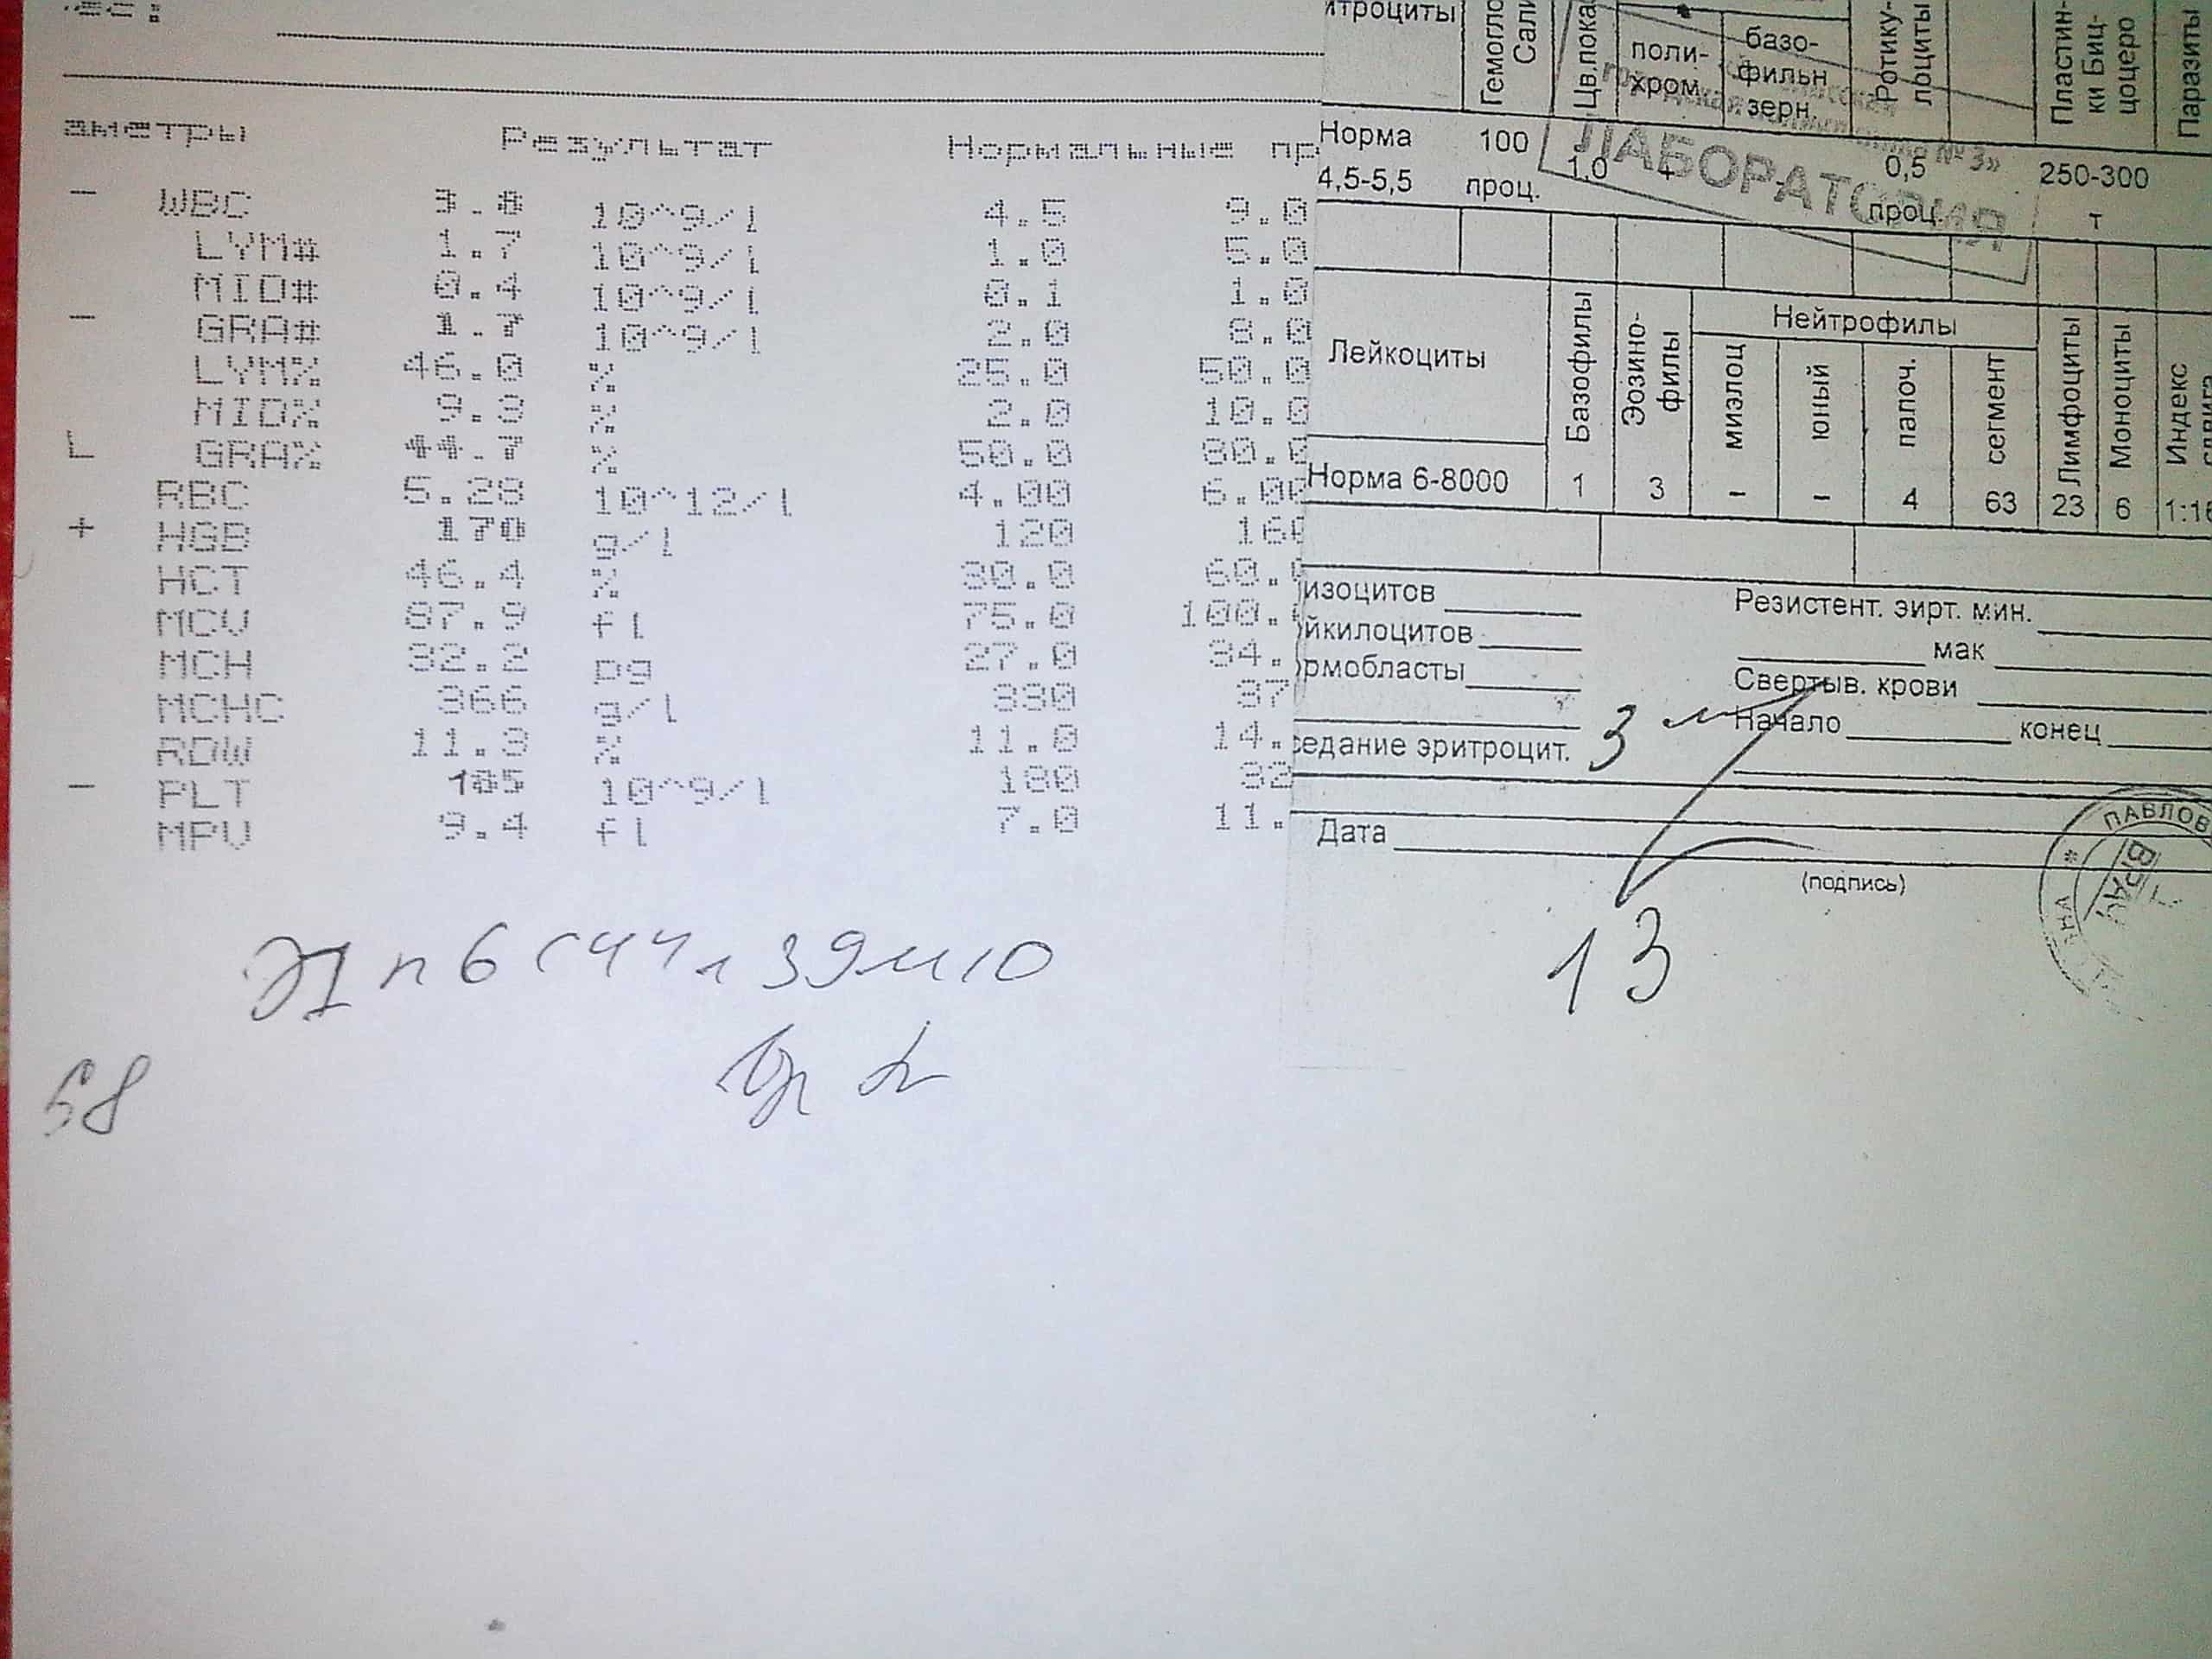 аметры Результат Нормальные пр
- WBC 3.8 10^9/l 4.5 9.0
LYM# 1.7 10^9/l 1.0 5.0
MID# 0.4 10^9/l 0.1 1.0
- GRA# 1.7 10^9/l 2.0 8.0
LYM% 46.0 % 25.0 50.0
MID% 9.3 % 2.0 10.0
L GRA% 44.7 % 50.0 80.0
RBC 5.28 10^12/l 4.00 6.00
+ HGB 170 g/l 120 160
HCT 46.4 % 30.0 60.0
MCV 87.9 fl 75.0 100.
MCH 32.2 pg 27.0 34.
MCHC 366 g/l 330 37
RDW 11.3 % 11.0 14.
- PLT 165 10^9/l 180 32
MPV 9.4 fl 7.0 11.
Э1 п6 с44 л 39 м10
58
итроциты
Гемогло
Сали
Цв.пока
поли-
хром.
базо-
фильн
зерн.
Ротику-
лоциты
Пластин-
ки Биц-
цоцеро
Паразиты
Норма 100 1,0 0,5 250-300
4,5-5,5 проц. проц. т
№ 3»
ЛАБОРАТОРИЯ
Лейкоциты
Базофилы
Эозино-
филы
Нейтрофилы
миэлоц
юный
палоч.
сегмент
Лимфоциты
Моноциты
Индекс
сдвига
Норма 6-8000 1 3 – – 4 63 23 6 1:16
изоцитов Резистент. эирт. мин.
йкилоцитов мак
рмобласты Свертыв. крови
Начало конец
седание эритроцит. 3
Дата
(подпись)
13
ПАВЛОВ
ВРАЧ